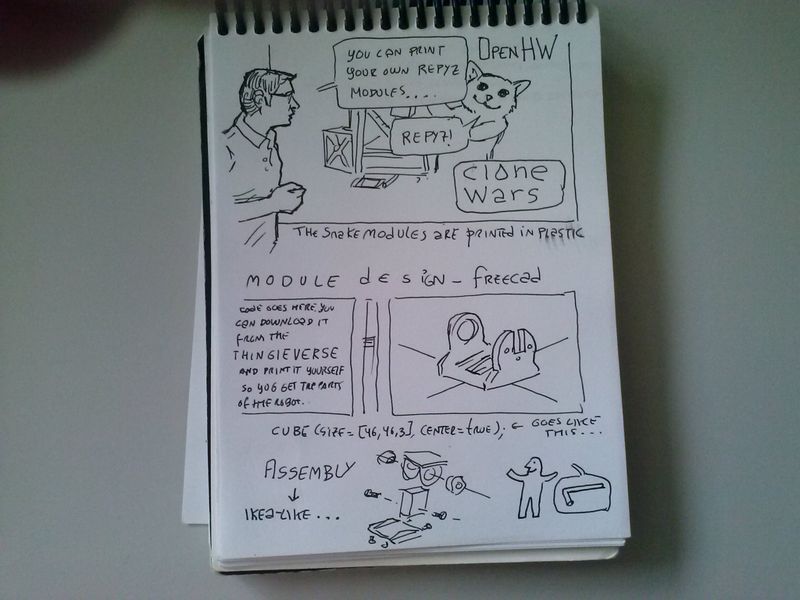 OPENHW
YOU CAN PRINT
YOUR OWN REPYZ
MODULES....
REPYZ!
clone
wars
THE SNAKE MODULES ARE PRINTED IN PLASTIC
MODULE dESIGN - FREECAD
CODE GOES HERE, YOU
CAN DOWNLOAD IT
FROM THE
THINGIEVERSE
AND PRINT IT YOURSELF
SO YOU GET THE PARTS
OF THE ROBOT..
CUBE (SIZE = [46,46,3], CENTER=TRUE); ← GOES LIKE
THIS...
ASSEMBLY
↓
IKEA-LIKE...